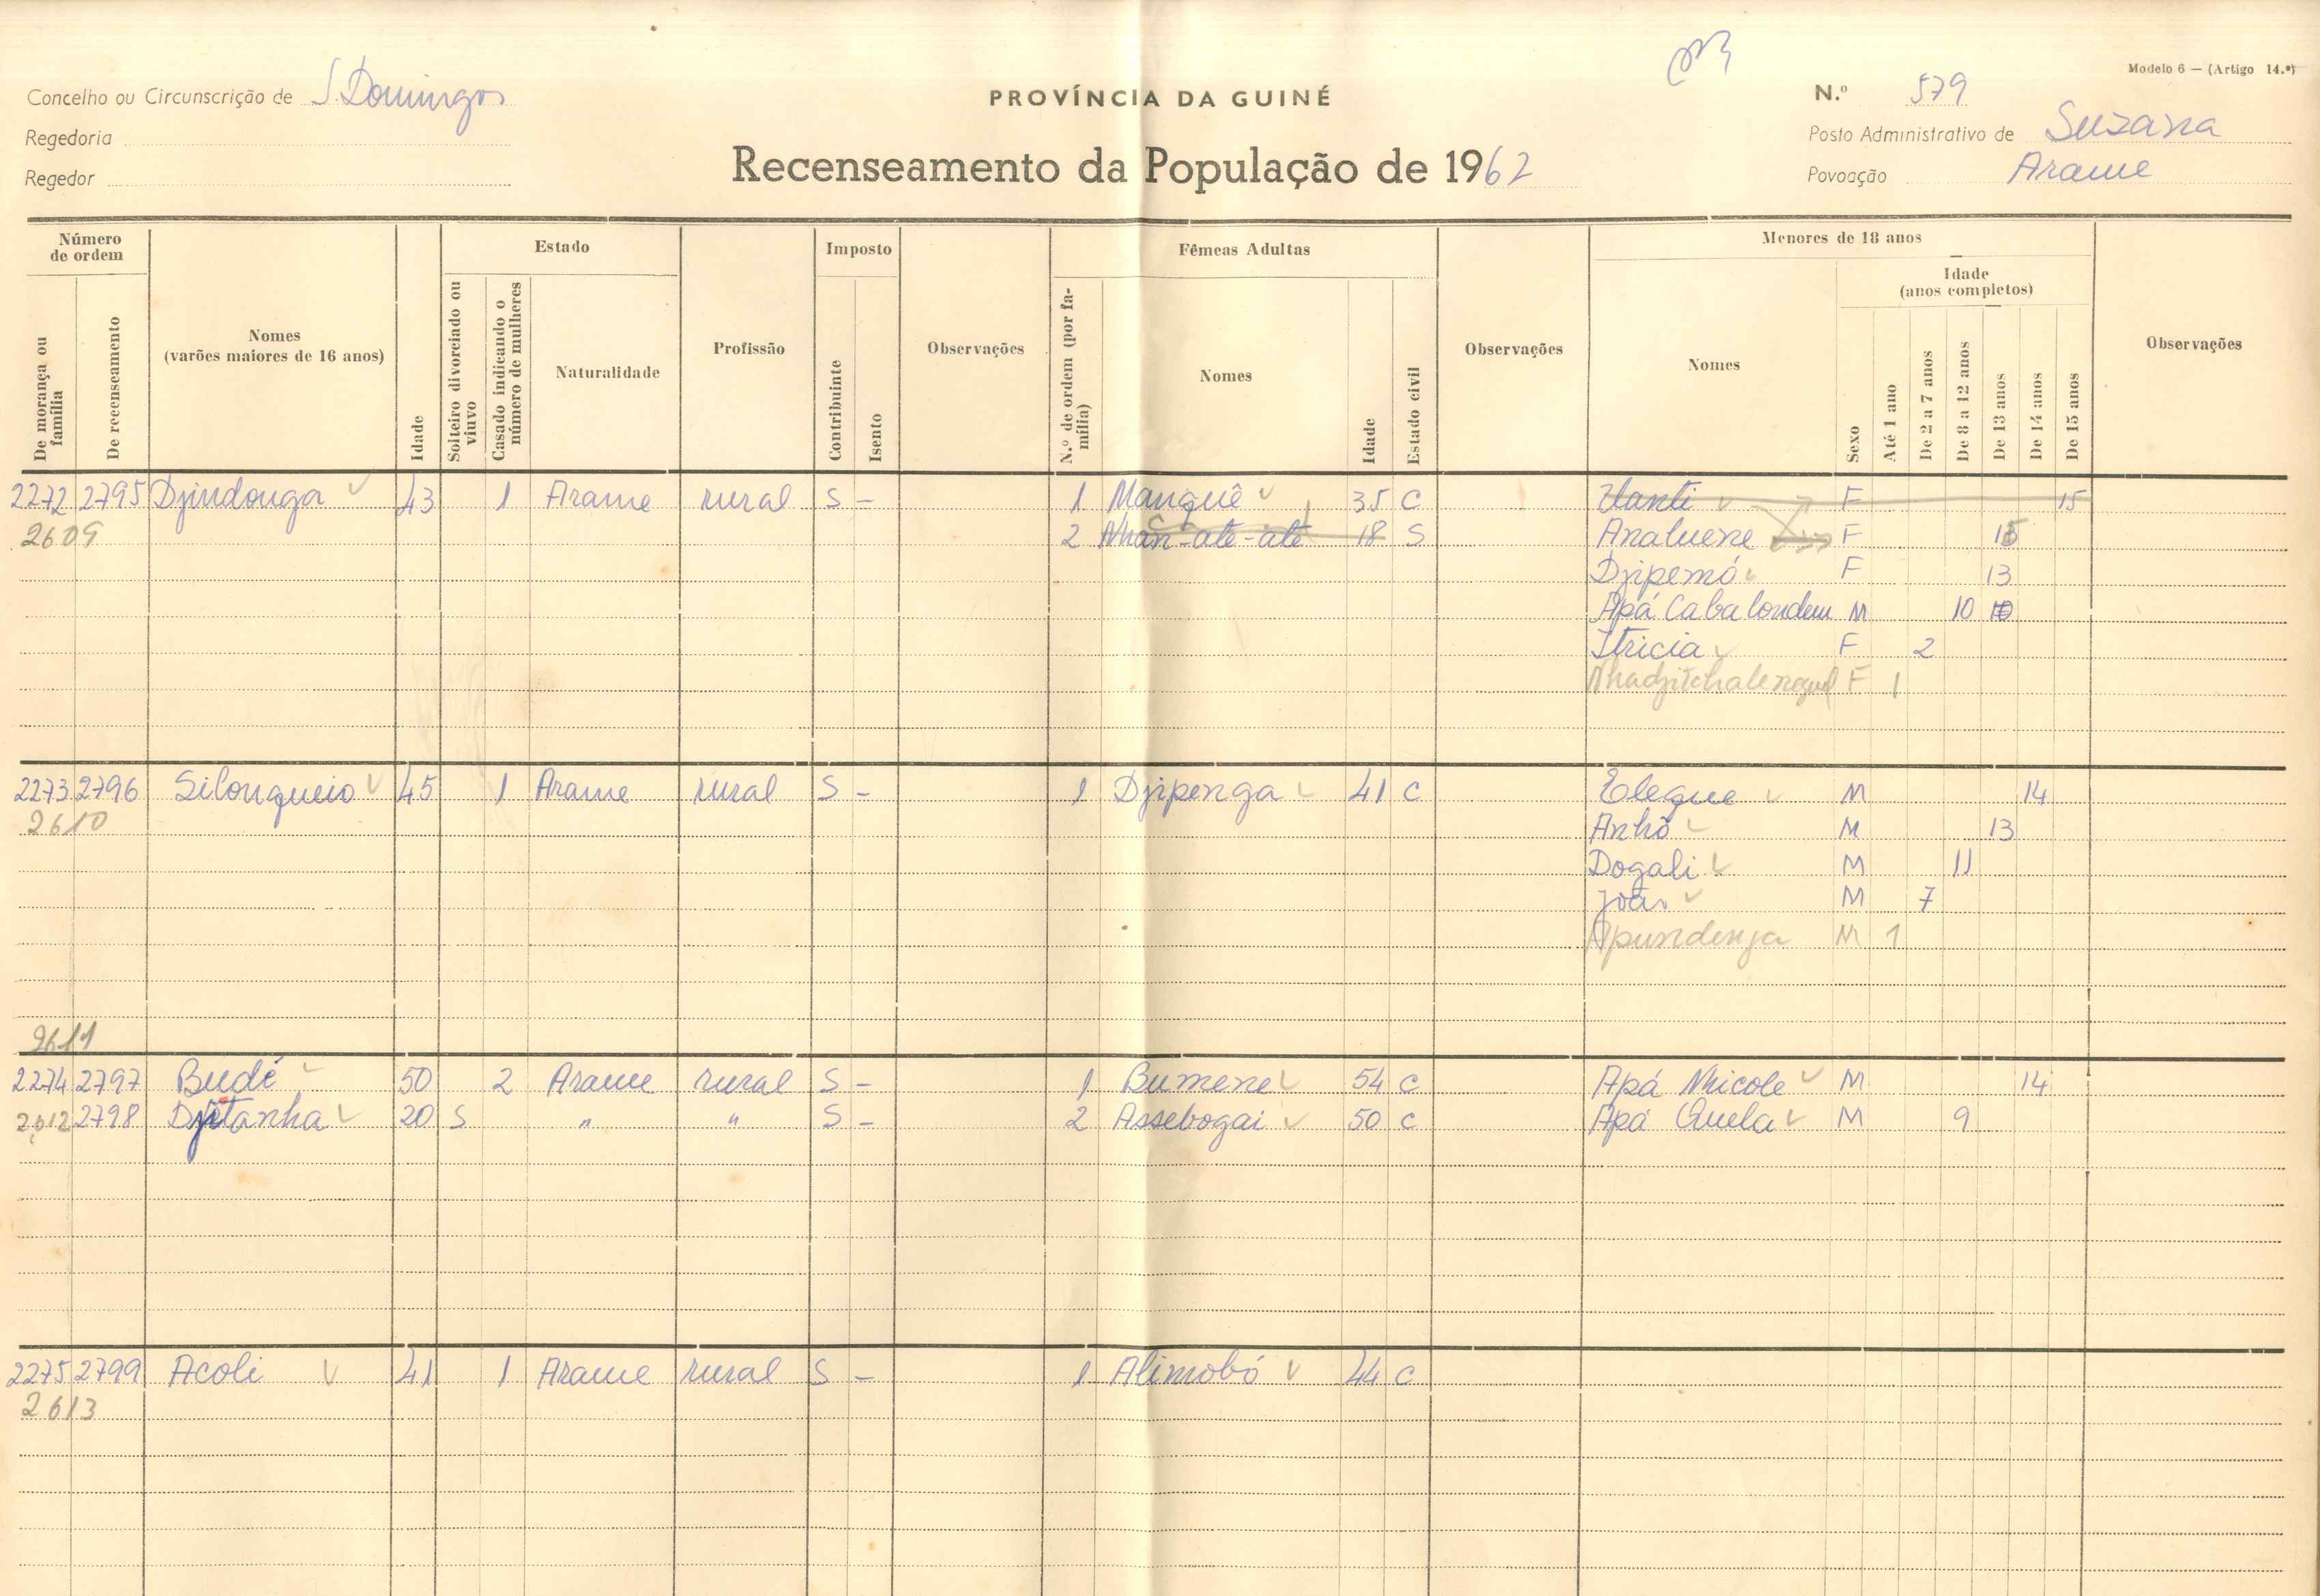 Modelo 6 — (Artigo 14.º)
Concelho ou Circunscrição de S. Domingos
PROVÍNCIA DA GUINÉ
N.º 579
Regedoria
Posto Administrativo de Suzana
Regedor
Recenseamento da População de 1962
Povoação Arame
Número de ordem
De morança ou família
De recenseamento
Nomes (varões maiores de 16 anos)
Idade
Estado
Solteiro divorciado ou viuvo
Casado indicando o número de mulheres
Naturalidade
Profissão
Imposto
Contribuinte
Isento
Observações
Fêmeas Adultas
N.º de ordem (por família)
Nomes
Idade
Estado civil
Observações
Menores de 18 anos
Nomes
Sexo
Idade (anos completos)
Até 1 ano
De 2 a 7 anos
De 8 a 12 anos
De 13 anos
De 14 anos
De 15 anos
Observações
2272 2795 Djindonga 43 1 Arame rural S - 1 Manquê 35 C Uanti F 15
2609 2 Nhan-ate-ate 18 S Analuene F 15
Djipemó F 13
Apá Cabalondem M 10 10
Itricia F 2
F 1
2273 2796 Silonqueio 45 1 Arame rural S - 1 Djipenga 41 C Elegue M 14
2610 Anhô M 13
Dogali M 11
João M 7
Apundenja M 1
2611
2274 2797 Budé 50 2 Arame rural S - 1 Bumene 54 C Apá Nhicole M 14
2612 2798 Djitanha 20 S " " S - 2 Assebogai 50 C Apá Quela M 9
2275 2799 Acoli 41 1 Arame rural S - 1 Alimobó 44 C
2613